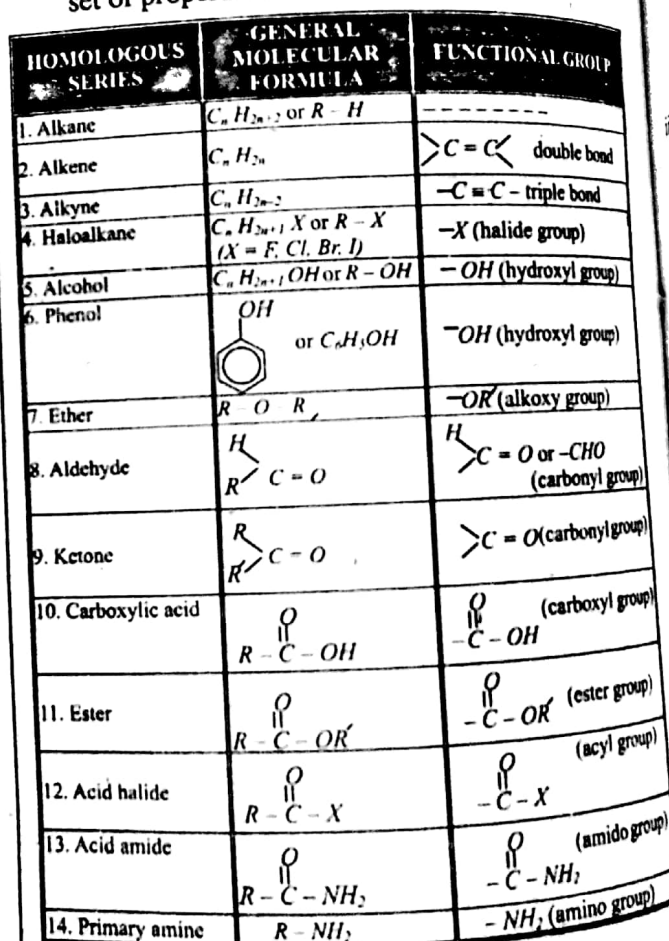 set of
HOMOLOGOUS SERIES | GENERAL MOLECULAR FORMULA | FUNCTIONAL GROUP
1. Alkane | CₙH₂ₙ₊₂ or R – H | ---------
2. Alkene | CₙH₂ₙ | >C = C< double bond
3. Alkyne | CₙH₂ₙ₋₂ | –C ≡ C – triple bond
4. Haloalkane | CₙH₂ₙ₊₁ X or R – X | –X (halide group)
(X = F, Cl, Br, I)
5. Alcohol | CₙH₂ₙ₊₁ OH or R – OH | – OH (hydroxyl group)
6. Phenol | OH or C₆H₅OH | –OH (hydroxyl group)
7. Ether | R – O – R, | –OR′ (alkoxy group)
8. Aldehyde | H R C = O | H >C = O or –CHO
(carbonyl group)
9. Ketone | R R′ >C = O | >C = O (carbonyl group)
10. Carboxylic acid | O (carboxyl group)
R – C – OH | – C – OH
11. Ester | O | O (ester group)
R – C – OR′ | – C – OR′
12. Acid halide | O | O (acyl group)
R – C – X | – C – X
13. Acid amide | O | O (amido group)
R – C – NH₂ | – C – NH₂
14. Primary amine | R – NH₂ | – NH₂ (amino group)